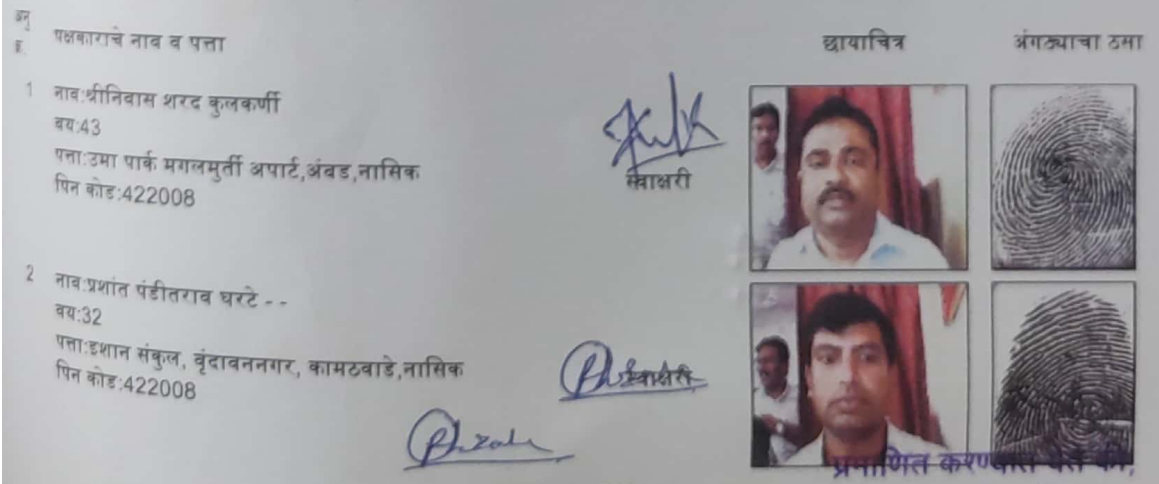 अनु क्र. पक्षकाराचे नाव व पत्ता छायाचित्र अंगठ्याचा ठसा
1 नाव:श्रीनिवास शरद कुलकर्णी
वय:43
पत्ता:उमा पार्क मगलमुर्ती अपार्ट,अंबड,नासिक
पिन कोड:422008
स्वाक्षरी
2 नाव:प्रशांत पंडीतराव घरटे - -
वय:32
पत्ता:इशान संकुल, वृंदावननगर, कामठवाडे,नासिक
पिन कोड:422008
स्वाक्षरी
प्रमाणित करण्यात येते की,